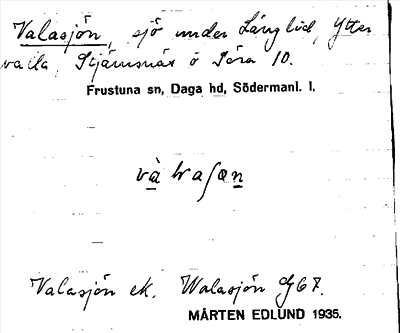 Valasjön, sjö under Långlid, Ytter
valla, Stjärnsnäs o Tóra 10.
Frustuna sn, Daga hd, Södermanl. l.
Valasjön ek. Walasjön GJ67.
MÅRTEN EDLUND 1935.